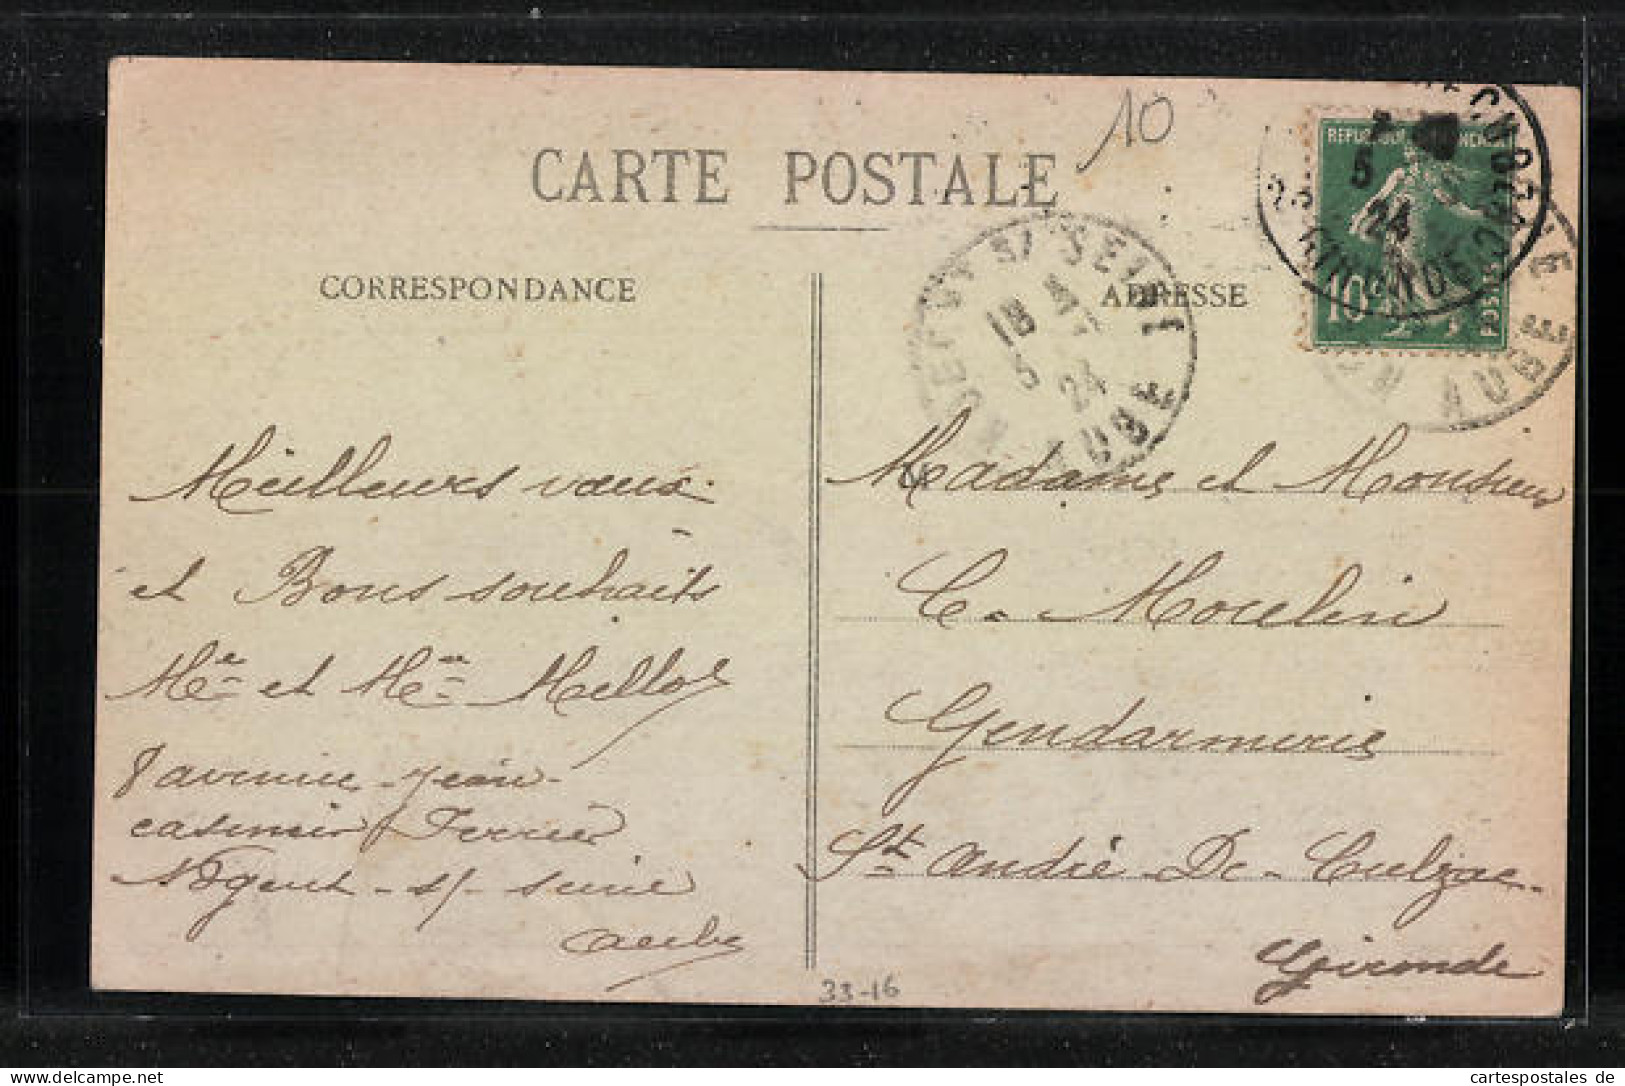 CARTE POSTALE
10
CORRESPONDANCE
ADRESSE
REPUBLIQUE FRANCAISE
10c
POSTES
5
24
GIRONDE
S/ SEINE
18
5
24
AUBE
AUBE
Meilleurs vœux
et Bons souhaits
Mr et Mme Mellot
8 avenue Jean
casimir Perrier
Nogent s/ seine
aube
Madame et Monsieur
C. Moulin
Gendarmerie
St André De Culzac
Gironde
33-16
delcampe.net
cartespostales de